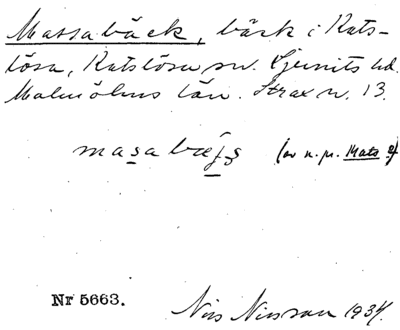 Massabäck, bäck i Kats-
lösa, Katslösa sn. Ljunits hd.
Malmöhus län. Strax n. 13.
masabæʃs (av n.pr. Mats
Nr 5663.
Nils Nilsson 1934.